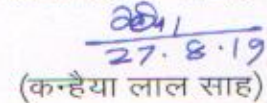 27.8.19
(कन्हैया लाल साह)